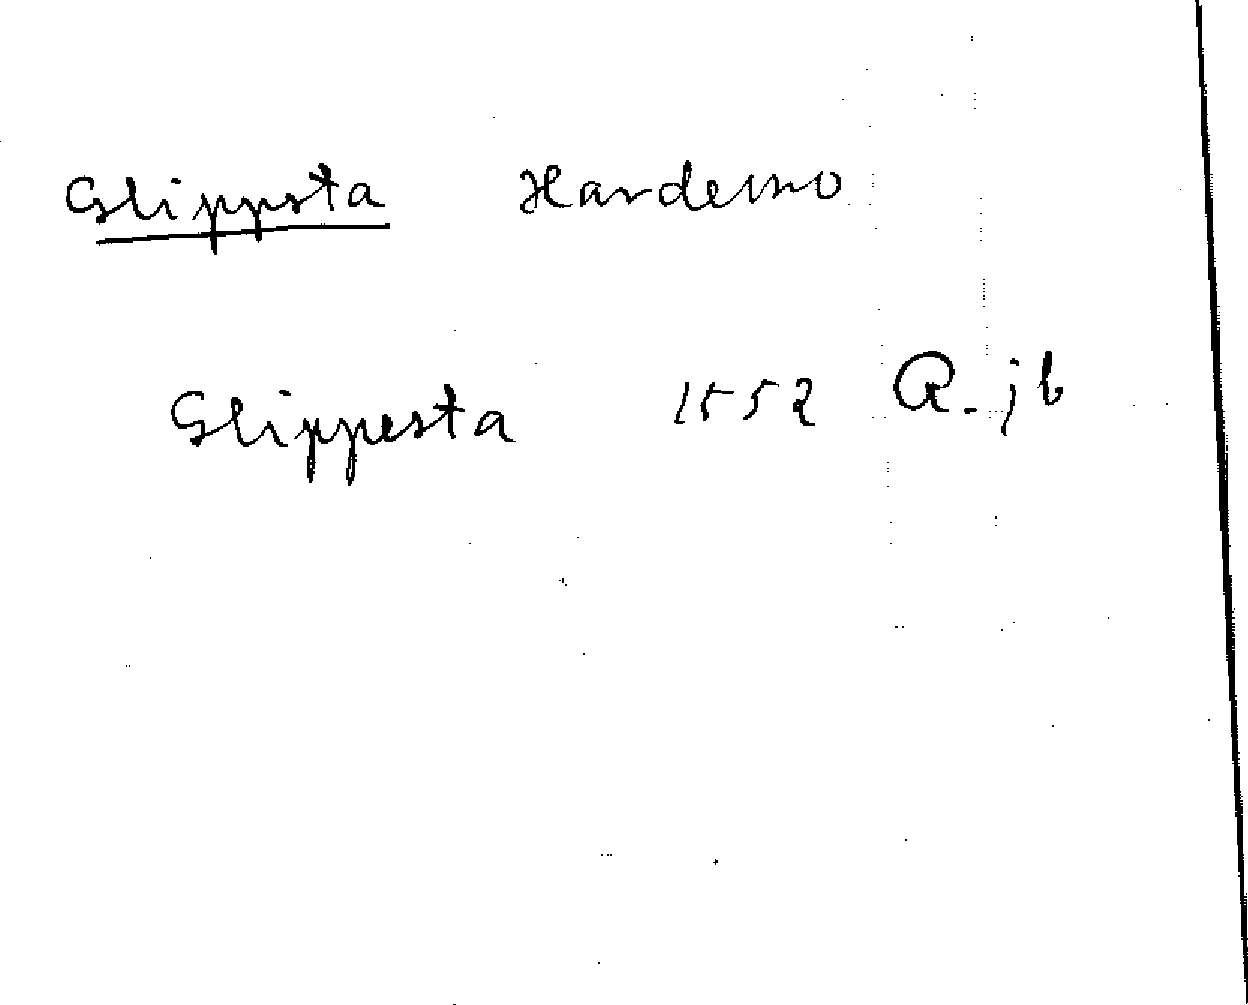 Glippsta Hardemo
Glippesta 1552 Q. jb